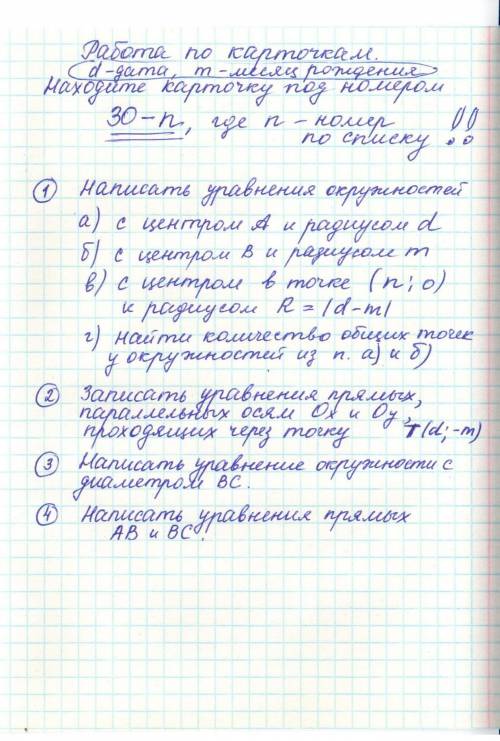 Работа по карточкам.
d-дата, m-месяц рождения
Находите карточку под номером
30-n, где n-номер
по списку !!
① Написать уравнения окружностей
а) с центром А и радиусом d
б) с центром В и радиусом m
в) с центром в точке (n; 0)
и радиусом R = |d-m|
г) найти количество общих точек
у окружностей из п. а) и б)
② Записать уравнения прямых,
параллельных осям Ox и Oy,
проходящих через точку T(d;-m)
③ Написать уравнение окружности с
диаметром BC.
④ Написать уравнения прямых
AB и BC.